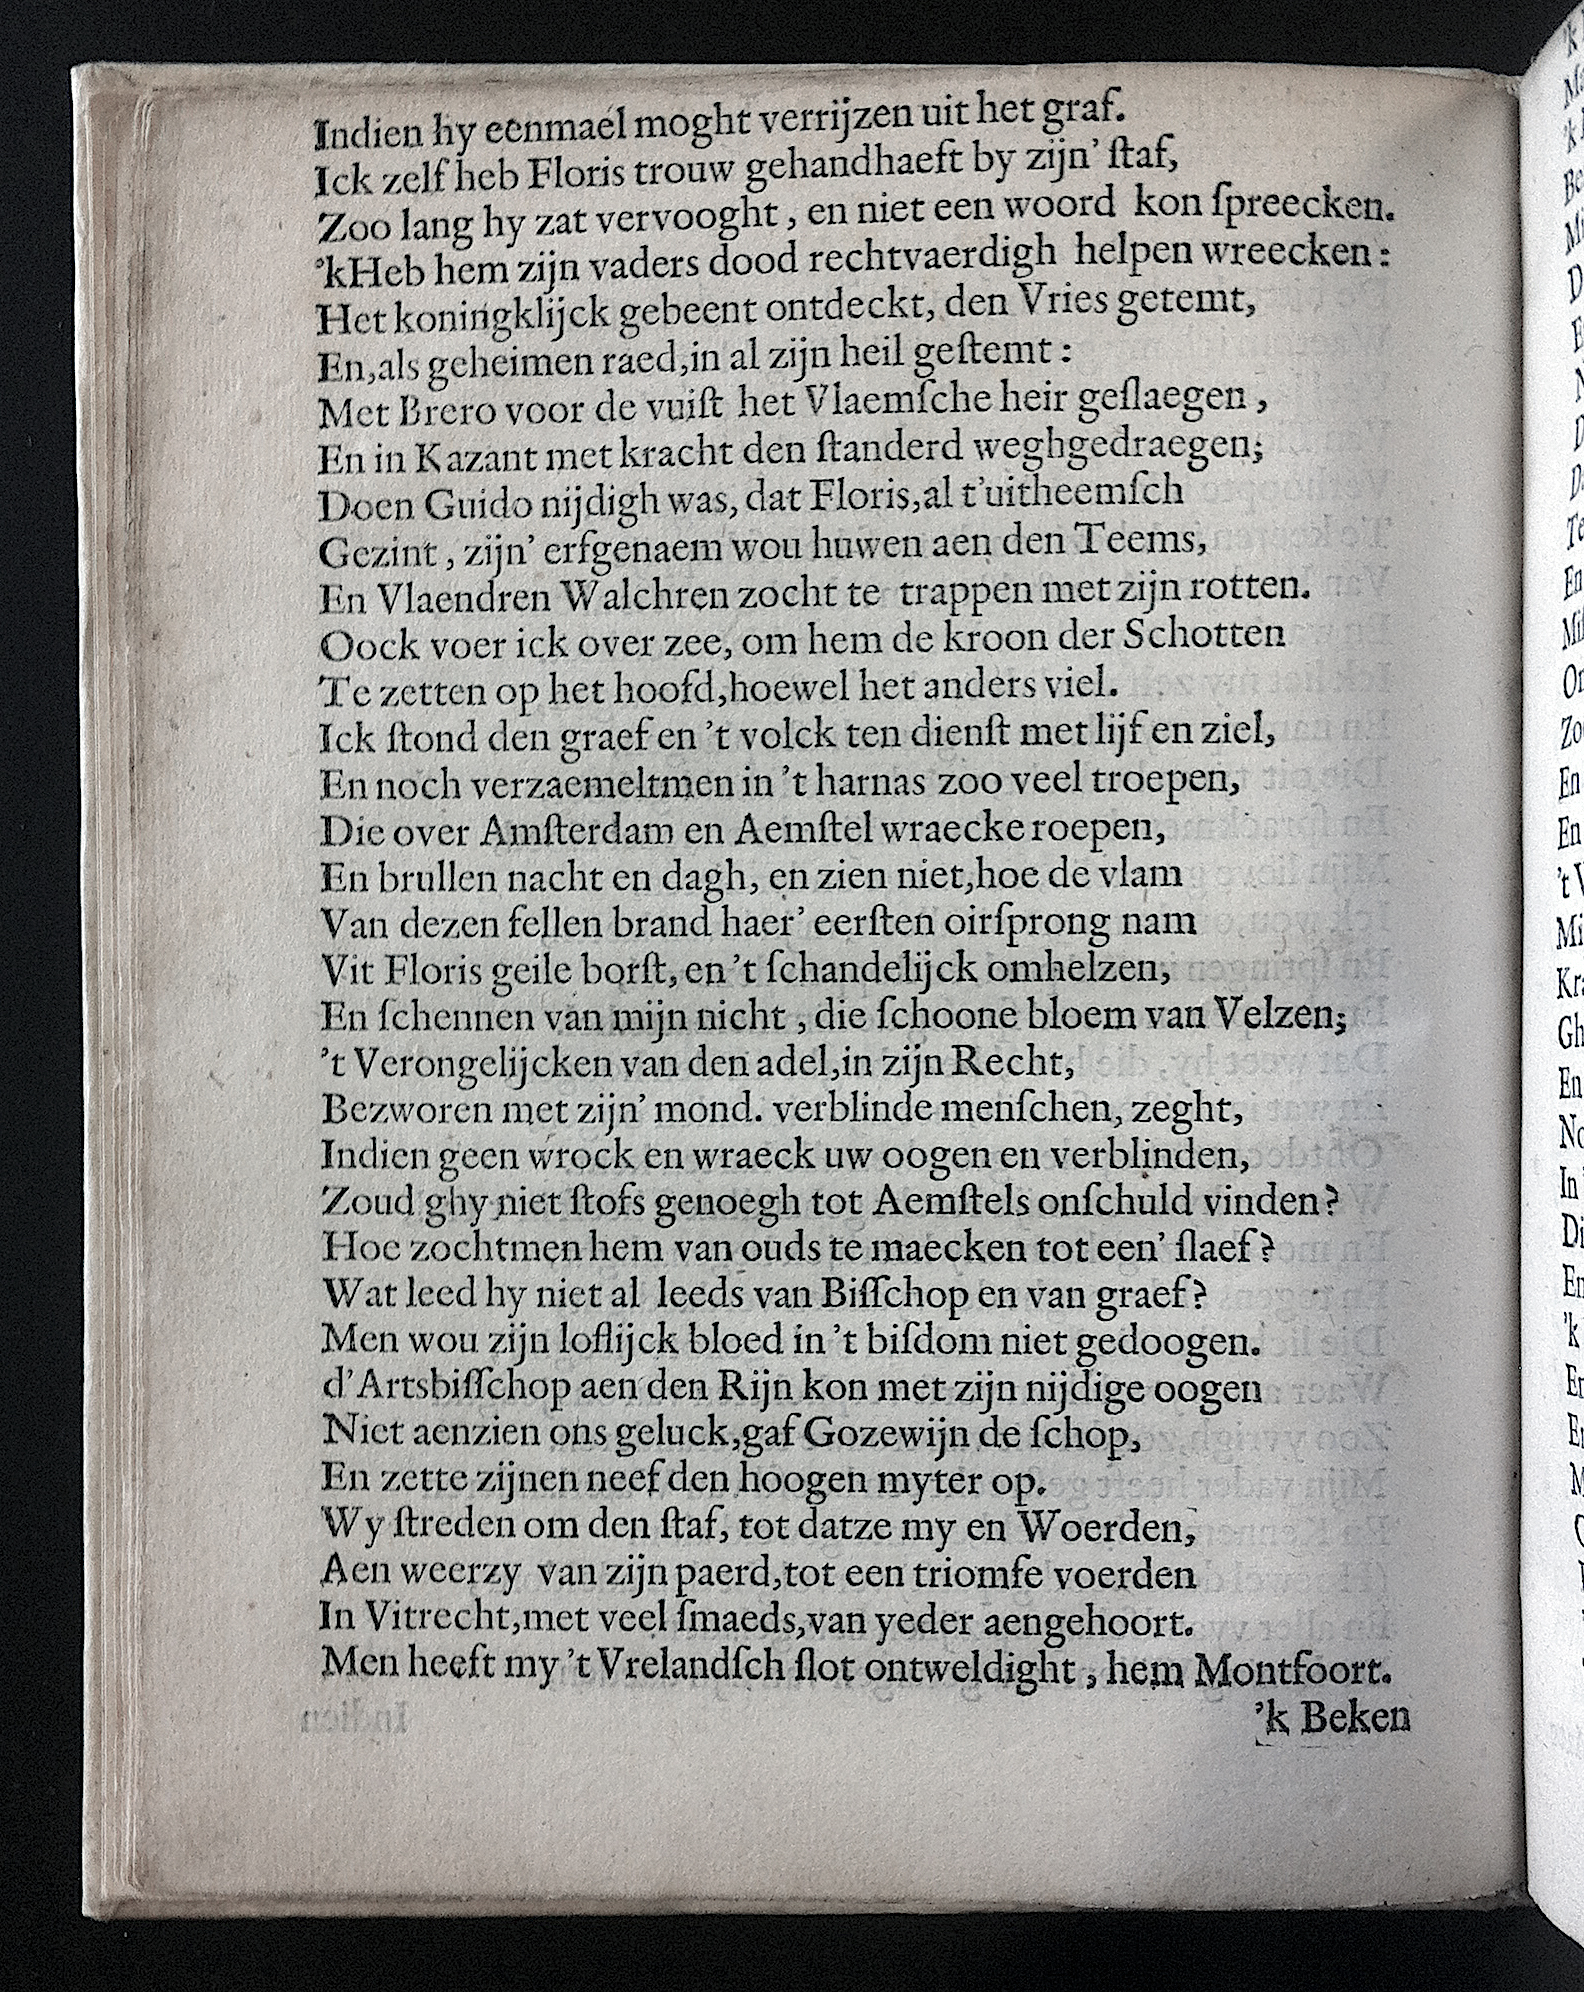 Indien hy eenmael moght verrijzen uit het graf.
Ick zelf heb Floris trouw gehandhaeft by zijn' ſtaf,
Zoo lang hy zat vervooght, en niet een woord kon ſpreecken.
'kHeb hem zijn vaders dood rechtvaerdigh helpen wreecken:
Het koningklijck gebeent ontdeckt, den Vries getemt,
En, als geheimen raed, in al zijn heil geſtemt:
Met Brero voor de vuiſt het Vlaemſche heir geſlaegen,
En in Kazant met kracht den ſtanderd weghgedraegen;
Doen Guido nijdigh was, dat Floris, al t'uitheemſch
Gezint, zijn' erfgenaem wou huwen aen den Teems,
En Vlaendren Walchren zocht te trappen met zijn rotten.
Oock voer ick over zee, om hem de kroon der Schotten
Te zetten op het hoofd, hoewel het anders viel.
Ick ſtond den graef en 't volck ten dienſt met lijf en ziel,
En noch verzaemeltmen in 't harnas zoo veel troepen,
Die over Amſterdam en Aemſtel wraecke roepen,
En brullen nacht en dagh, en zien niet, hoe de vlam
Van dezen fellen brand haer' eerſten oirſprong nam
Vit Floris geile borſt, en 't ſchandelijck omhelzen,
En ſchennen van mijn nicht, die ſchoone bloem van Velzen;
't Verongelijcken van den adel, in zijn Recht,
Bezworen met zijn' mond. verblinde menſchen, zeght,
Indien geen wrock en wraeck uw oogen en verblinden,
Zoud ghy niet ſtofs genoegh tot Aemſtels onſchuld vinden?
Hoe zochtmen hem van ouds te maecken tot een' ſlaef?
Wat leed hy niet al leeds van Biſſchop en van graef?
Men wou zijn loflijck bloed in 't biſdom niet gedoogen.
d'Artsbiſſchop aen den Rijn kon met zijn nijdige oogen
Niet aenzien ons geluck, gaf Gozewijn de ſchop,
En zette zijnen neef den hoogen myter op.
Wy ſtreden om den ſtaf, tot datze my en Woerden,
Aen weerzy van zijn paerd, tot een triomfe voerden
In Vitrecht, met veel ſmaeds, van yeder aengehoort.
Men heeft my 't Vrelandſch ſlot ontweldight, hem Montfoort.
'k Beken